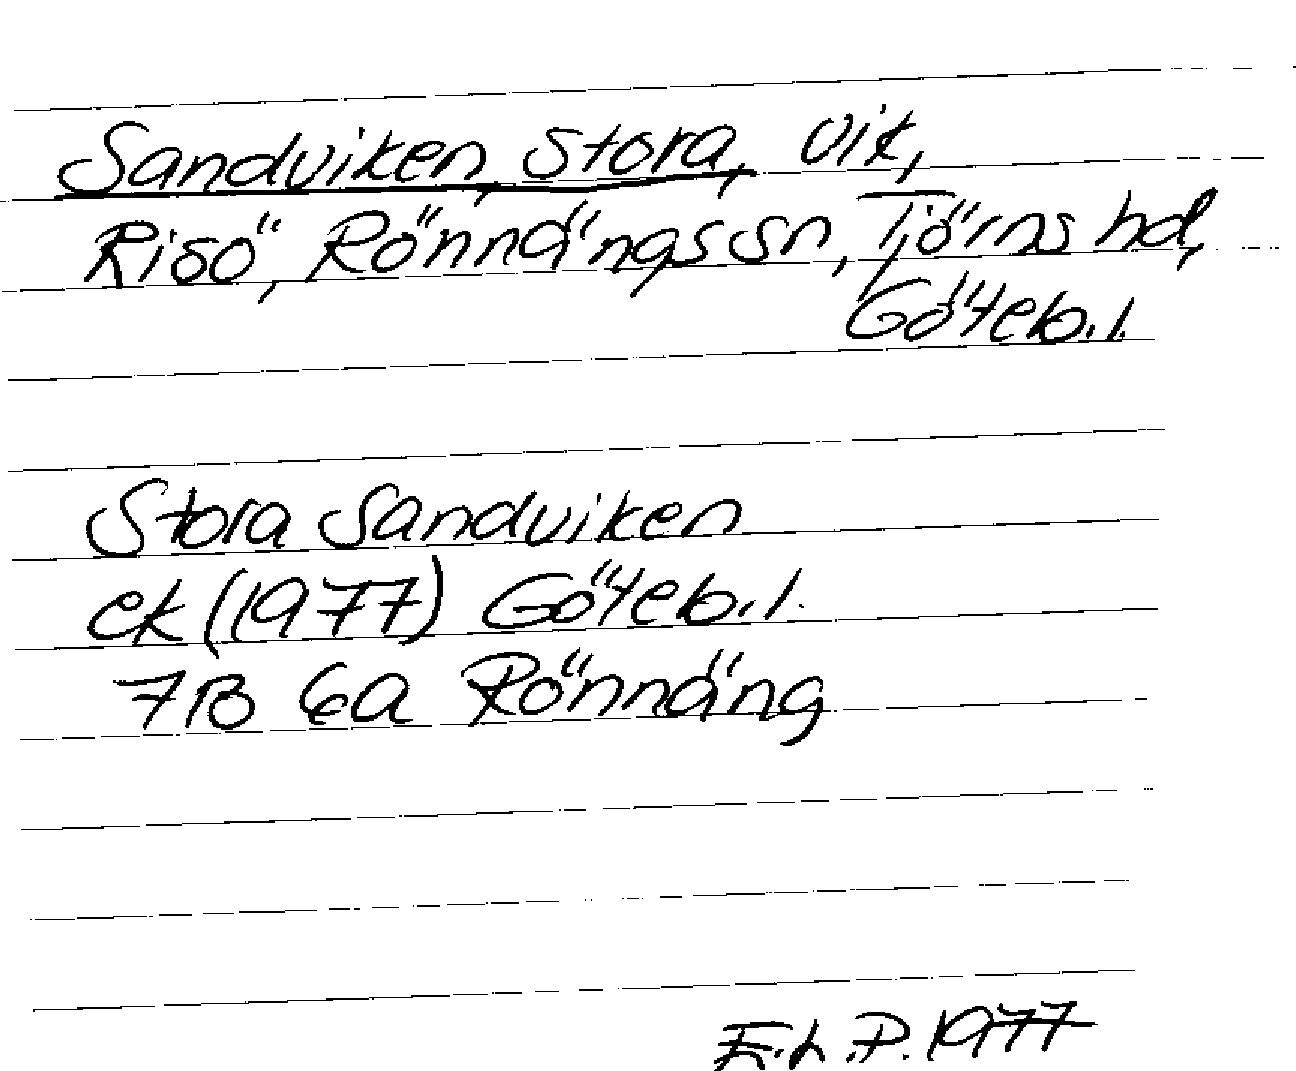 Sandviken, Stora, vik,
Risö, Rönnängs sn, Tjörns hd,
Göteb.l.
Stora Sandviken
ek (1977) Göteb.l.
7B 6a Rönnäng
E.L.P. 1977